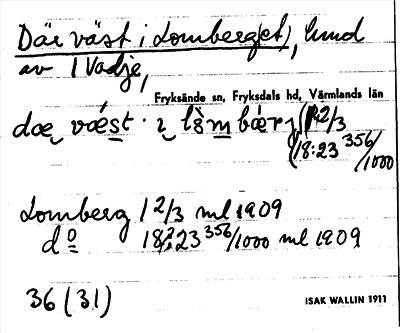 Där väst i Lomberget), lund
av 1 Vadje,
Fryksände sn, Fryksdals hd, Värmlands län
dæ væ̀st · ı lò̤m bǽrj (1 2/3
(18:23 356/1000
Lomberg 1 2/3 ml 1909
d o 18:23 356/1000 ml 1909
36 (31)
ISAK WALLIN 1911